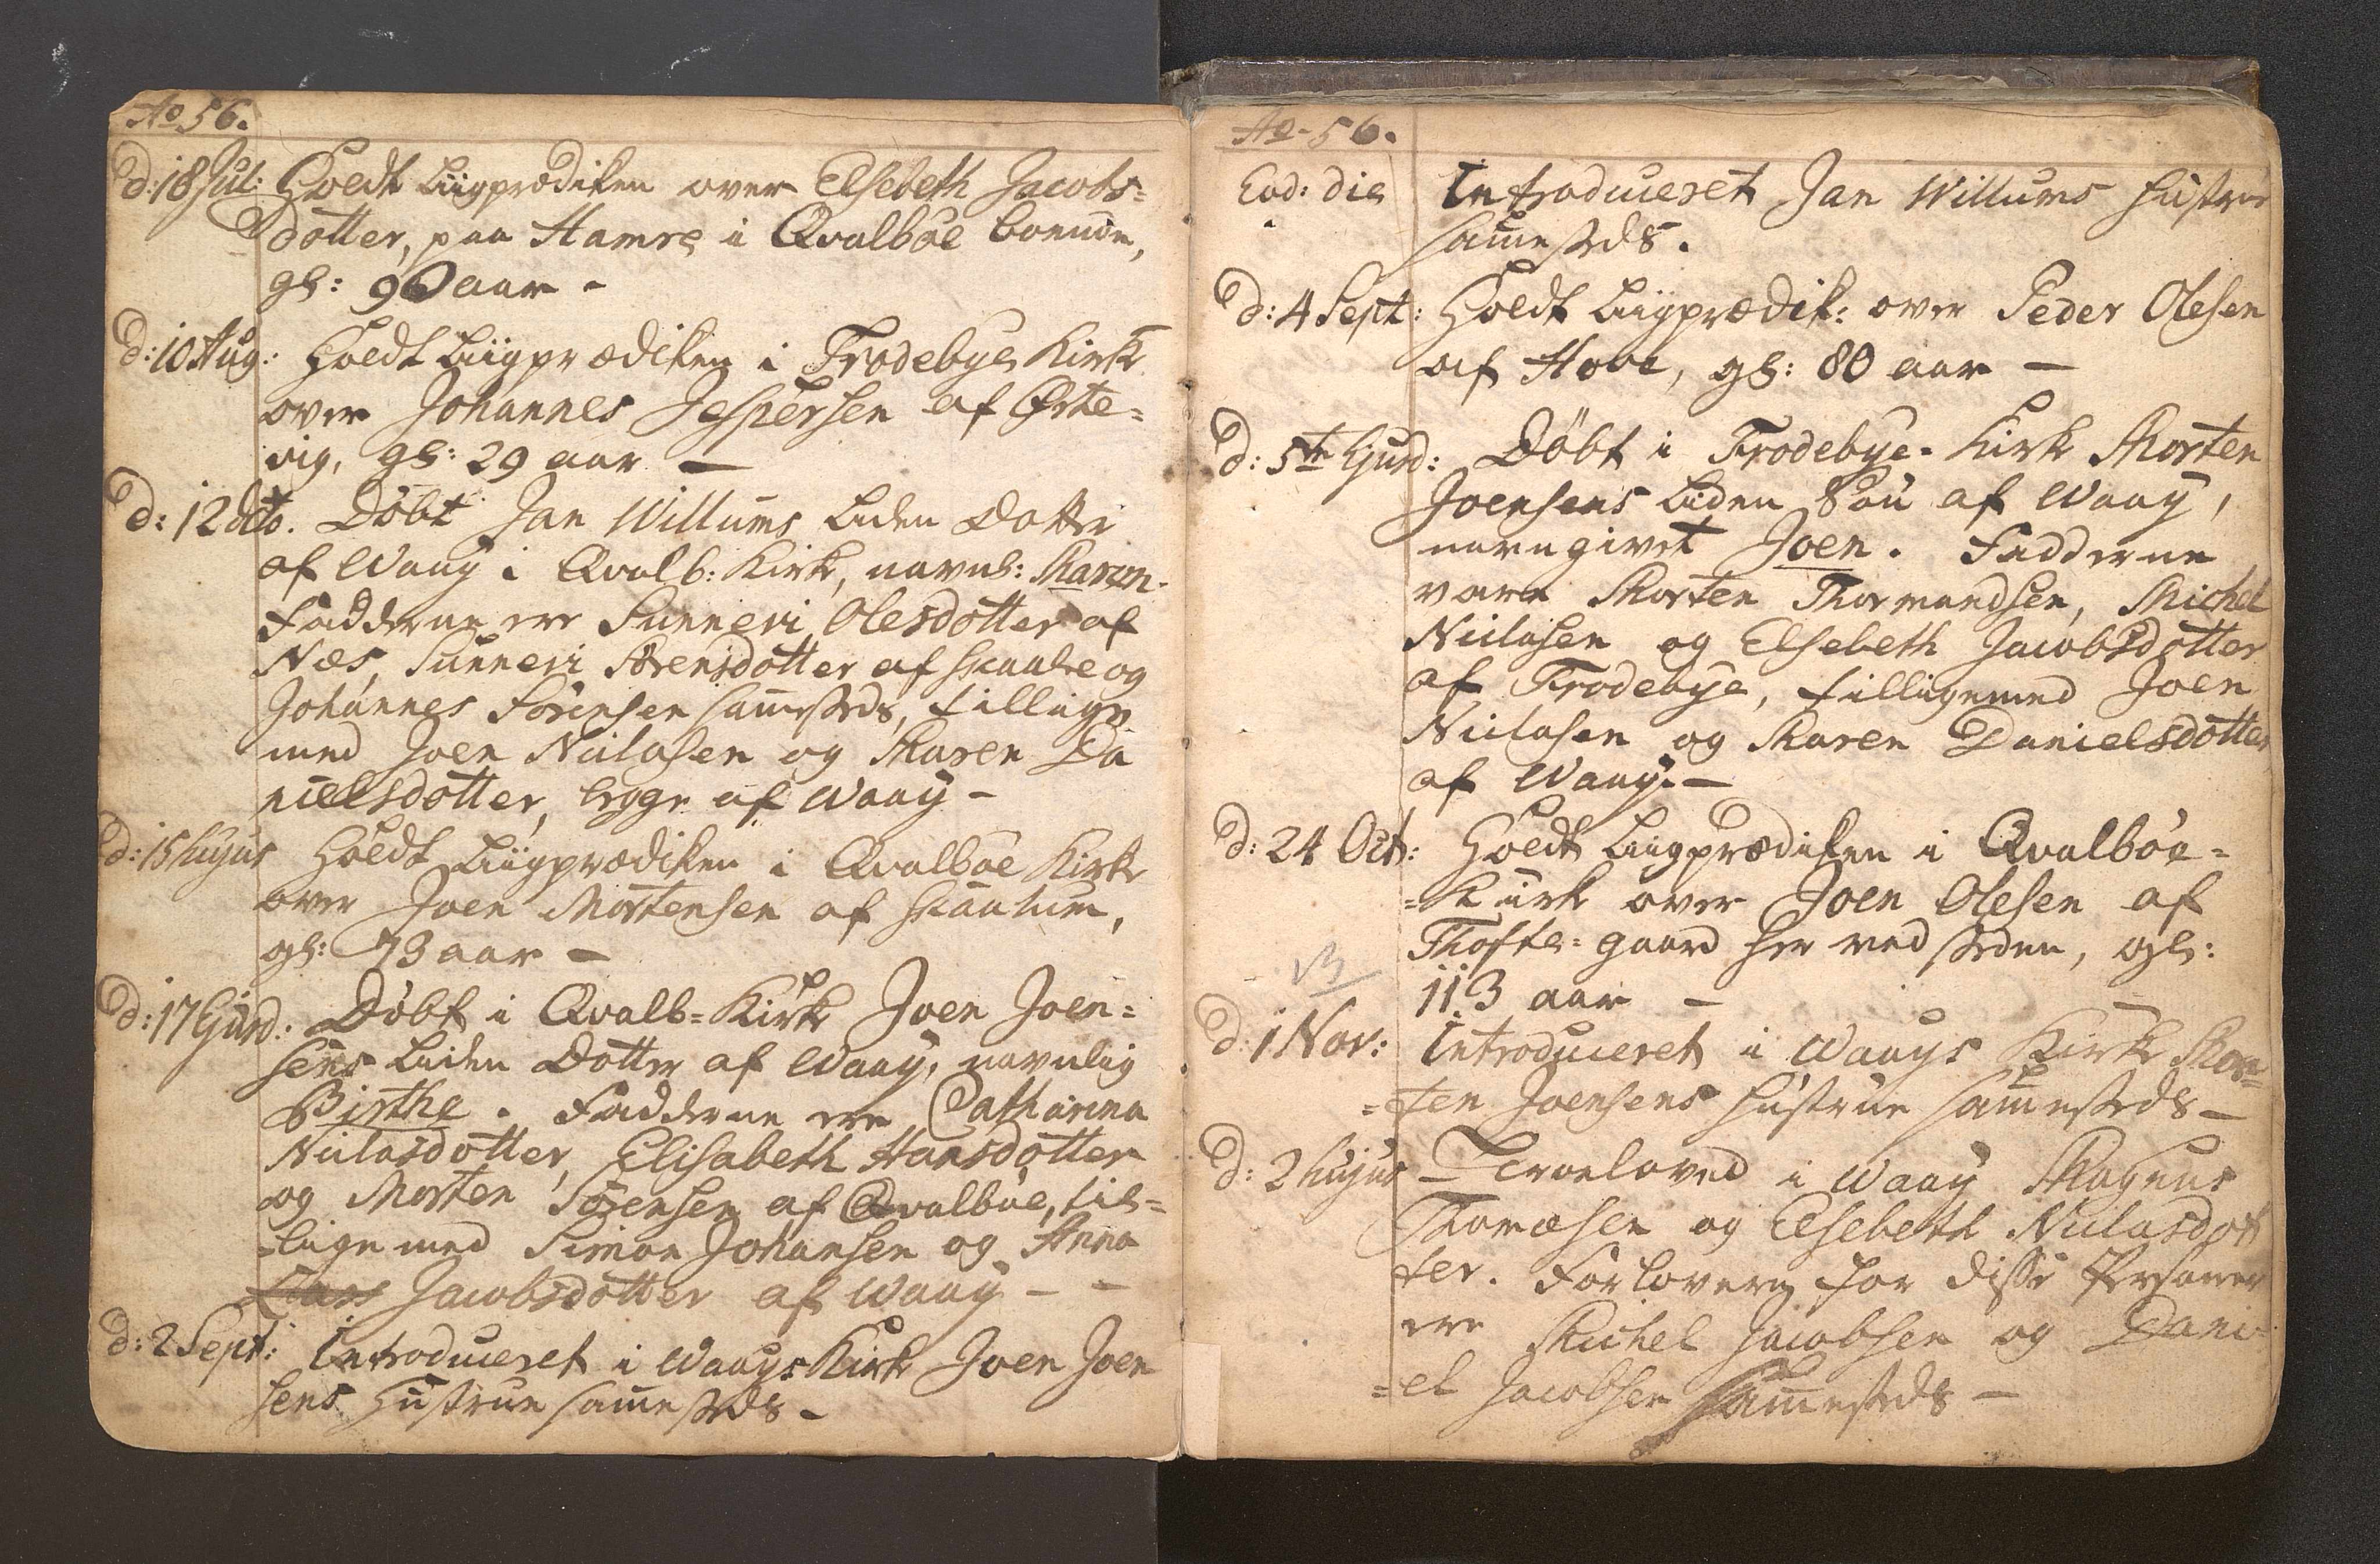 Ao 56.
d: 18 Jul: Holdt Liigprædiken over Elsebeth Jacobs-
dotter, paa Hamre i Qvalbøe boende,
gl: 90 aar -
d: 10 Aug: Holdt Liigprædiken i Frodebye Kirke
over Johannes Jespersen af Ørte-
vig, gl: 29 aar -
d: 12 dito. Døbt Jan Willums liden Dotter
af Waag i Qvalb: Kirke, navnl: Maren.
Fadderne ere Sunneri Olesdotter af
Næs, Sunneri Sørensdotter af og
Johannes Sørensen sammesteds, tillige
med Joen Niclasen og Maren Da
nielsdotter, begge af Waag -
d: 15 hujus Holdt Liigprædiken i Qvalbøe Kirke
over Joen Mortensen af
gl: 73 aar -
d: 17 Ejusd: Døbt i Qvalb-Kirke Joen Joen-
sens liden Dotter af Waag, navnlig
Birthe. Fadderne ere Catharina
Niclasdotter, Elisabeth Hansdotter
og Morten Sørensen af Qvalbøe, til-
-lige med Simon Johansen og Anna
Jacobsdotter af Waag - -
d: 2 Sept: Introduceret i Waags Kirke Joen Joen
sens Hustrue sammesteds -
Ao - 56.
Eod: die Introduceret Jan Willums Hustrue
sammesteds.
d: 4 Sept: Holdt Liigprædik: over Peder Olesen
af Hove, gl: 80 aar -
d: 5te Ejusd: Døbt i Frodebye- Kirke Morten
Joensens liden Søn af Waag,
navngivet Joen. Fadderne
vare Morten Thormandsen, Michel
Niclasen og Elsebeth Jacobsdotter
af Frodebye, tilligemed Joen
Niclasen og Maren Danielsdotter
af Waag. -
d: 24 Oct: Holdt Liigprædiken i Qvalbøe-
-Kirke over Joen Olesen af
Thofte-gaard her ved Steden, gl:
113 aar -
d: 1 Nov: Introduceret i Waags Kirke Mor-
-ten Joensens Hustrue sammesteds -
d: 2 hujus - Troeloved i Waag Magnus
Thomæsen og Elsebeth Niclasdot
ter. Forlovere for disse Personer
ere Michel Jacobsen og Dani-
-el Jacobsen sammesteds -